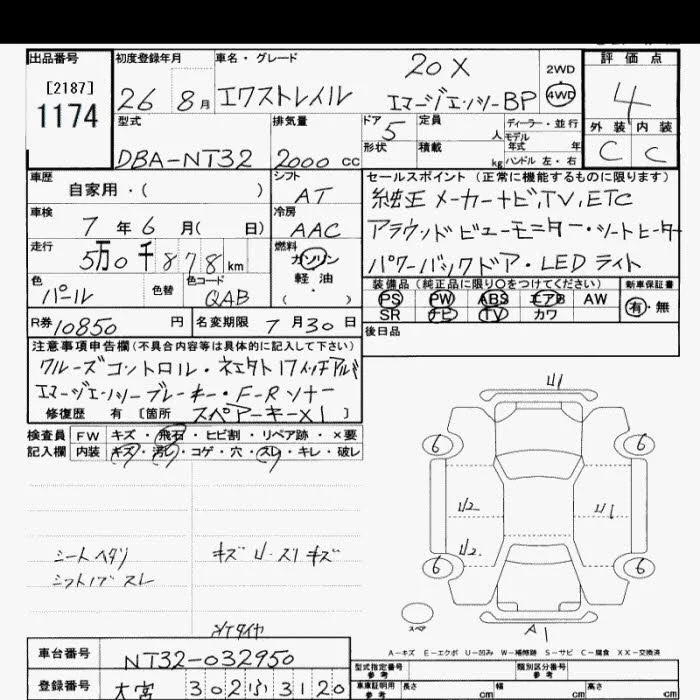 出品番号 初度登録年月 車名・グレード 評価点
[2187] 20X 2WD
1174 26 8月 エクストレイル エマージェンシーBP 4WD 4
型式 排気量 ドア 定員 ディーラー・並行 外装 内装
5 人 モデル年式 年
DBA-NT32 2000cc 形状 積載 kg ハンドル 左・右 C C
車歴 シフト セールスポイント (正常に機能するものに限ります)
自家用・( ) AT 純正メーカーナビ,TV,ETC
車検 冷房
7年6月( 日) AAC アラウンドビューモニター・シートヒーター
走行 燃料
5万0千878km ガソリン パワーバックドア・LEDライト
色 色替 色コード 軽油 装備品 (純正品に限り〇をつけてください) 新車保証書
パール QAB ( ・ ) PS PW ABS エアB AW 有・無
SR ナビ TV カワ
R券 10850円 名変期限 7月30日 後日品
注意事項申告欄(不具合内容等は具体的に記入して下さい)
クルーズコントロル・社外17インチアルミ
エマージェンシーブレーキ・F-Rソナー
修復歴 有 [箇所 スペアーキー×1 ]
検査員 FW キズ・飛石・ヒビ割・リペア跡・×要
記入欄 内装 キズ・汚レ・コゲ・穴・スレ・キレ・破レ
U1
6 6
U2 U1
U2
6 6
シートヘタリ キズ U・スリキズ
シフトノブスレ
スペア A1
A−キズ E−エクボ U−凹み W−補修跡 S−サビ C−腐食 XX−交換済
車台番号 NT32-032950 型式指定番号 類別区分番号
登録番号 大宮 302 ふ 3120 車庫証明用参考 長さ cm 幅 cm 高さ cm